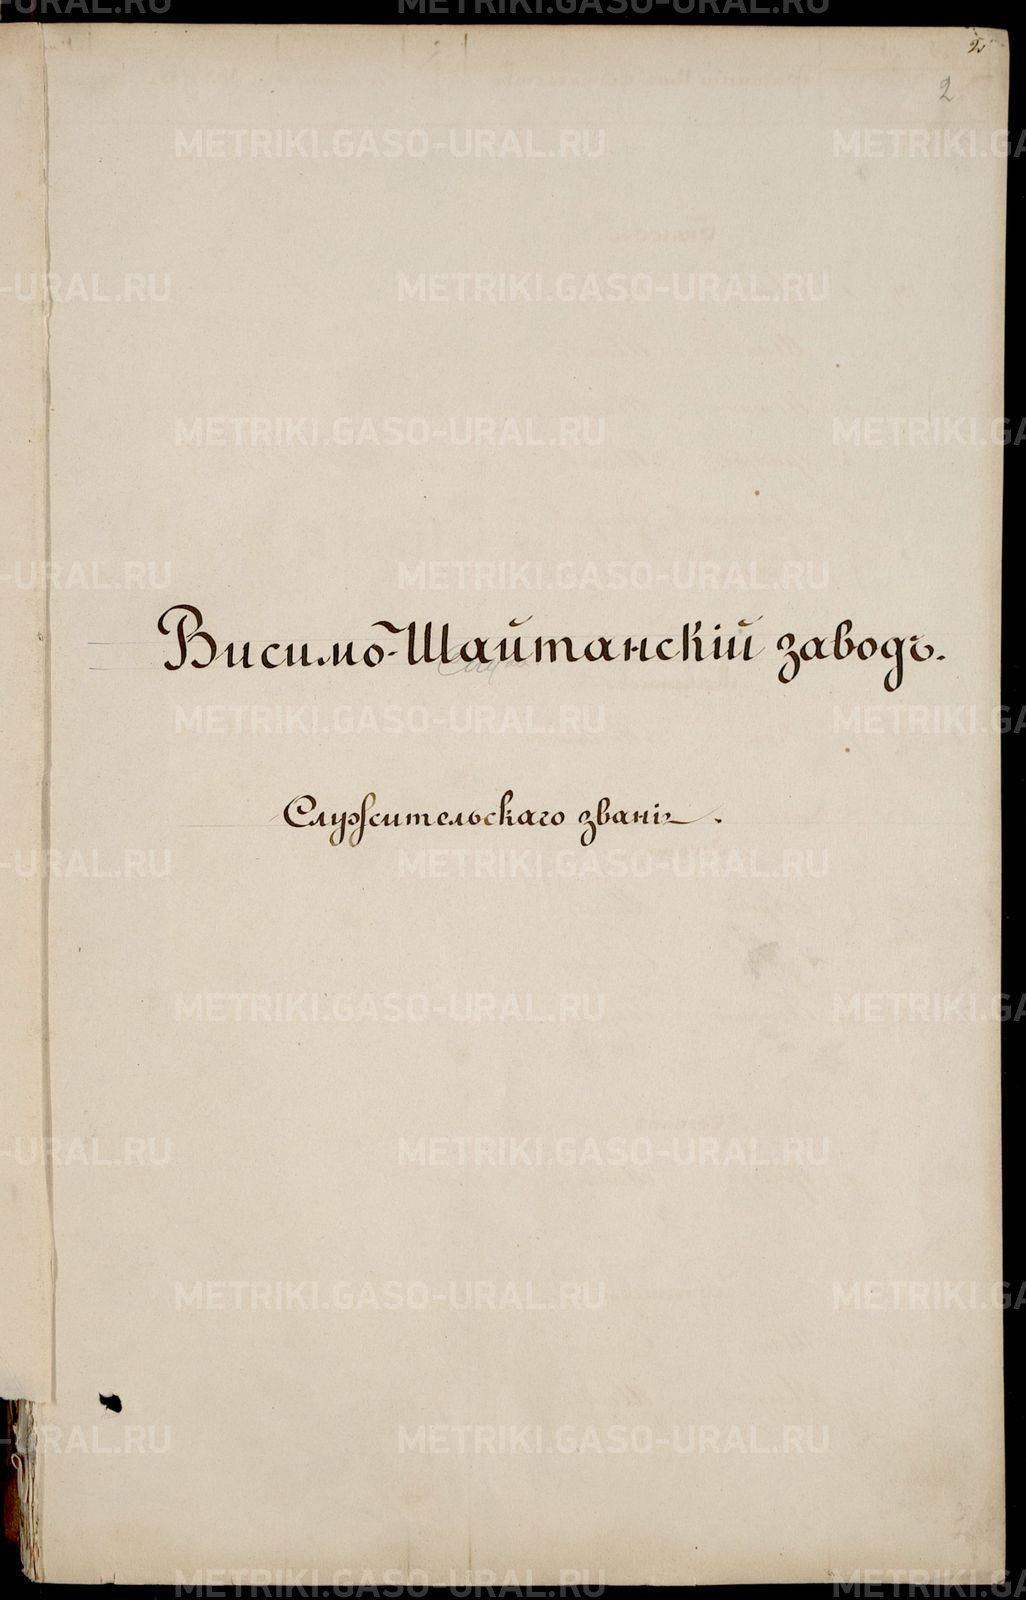 2
2
Висимо-Шайтанскій заводъ.
Служительскаго званія.
METRIKI.GASO-URAL.RU